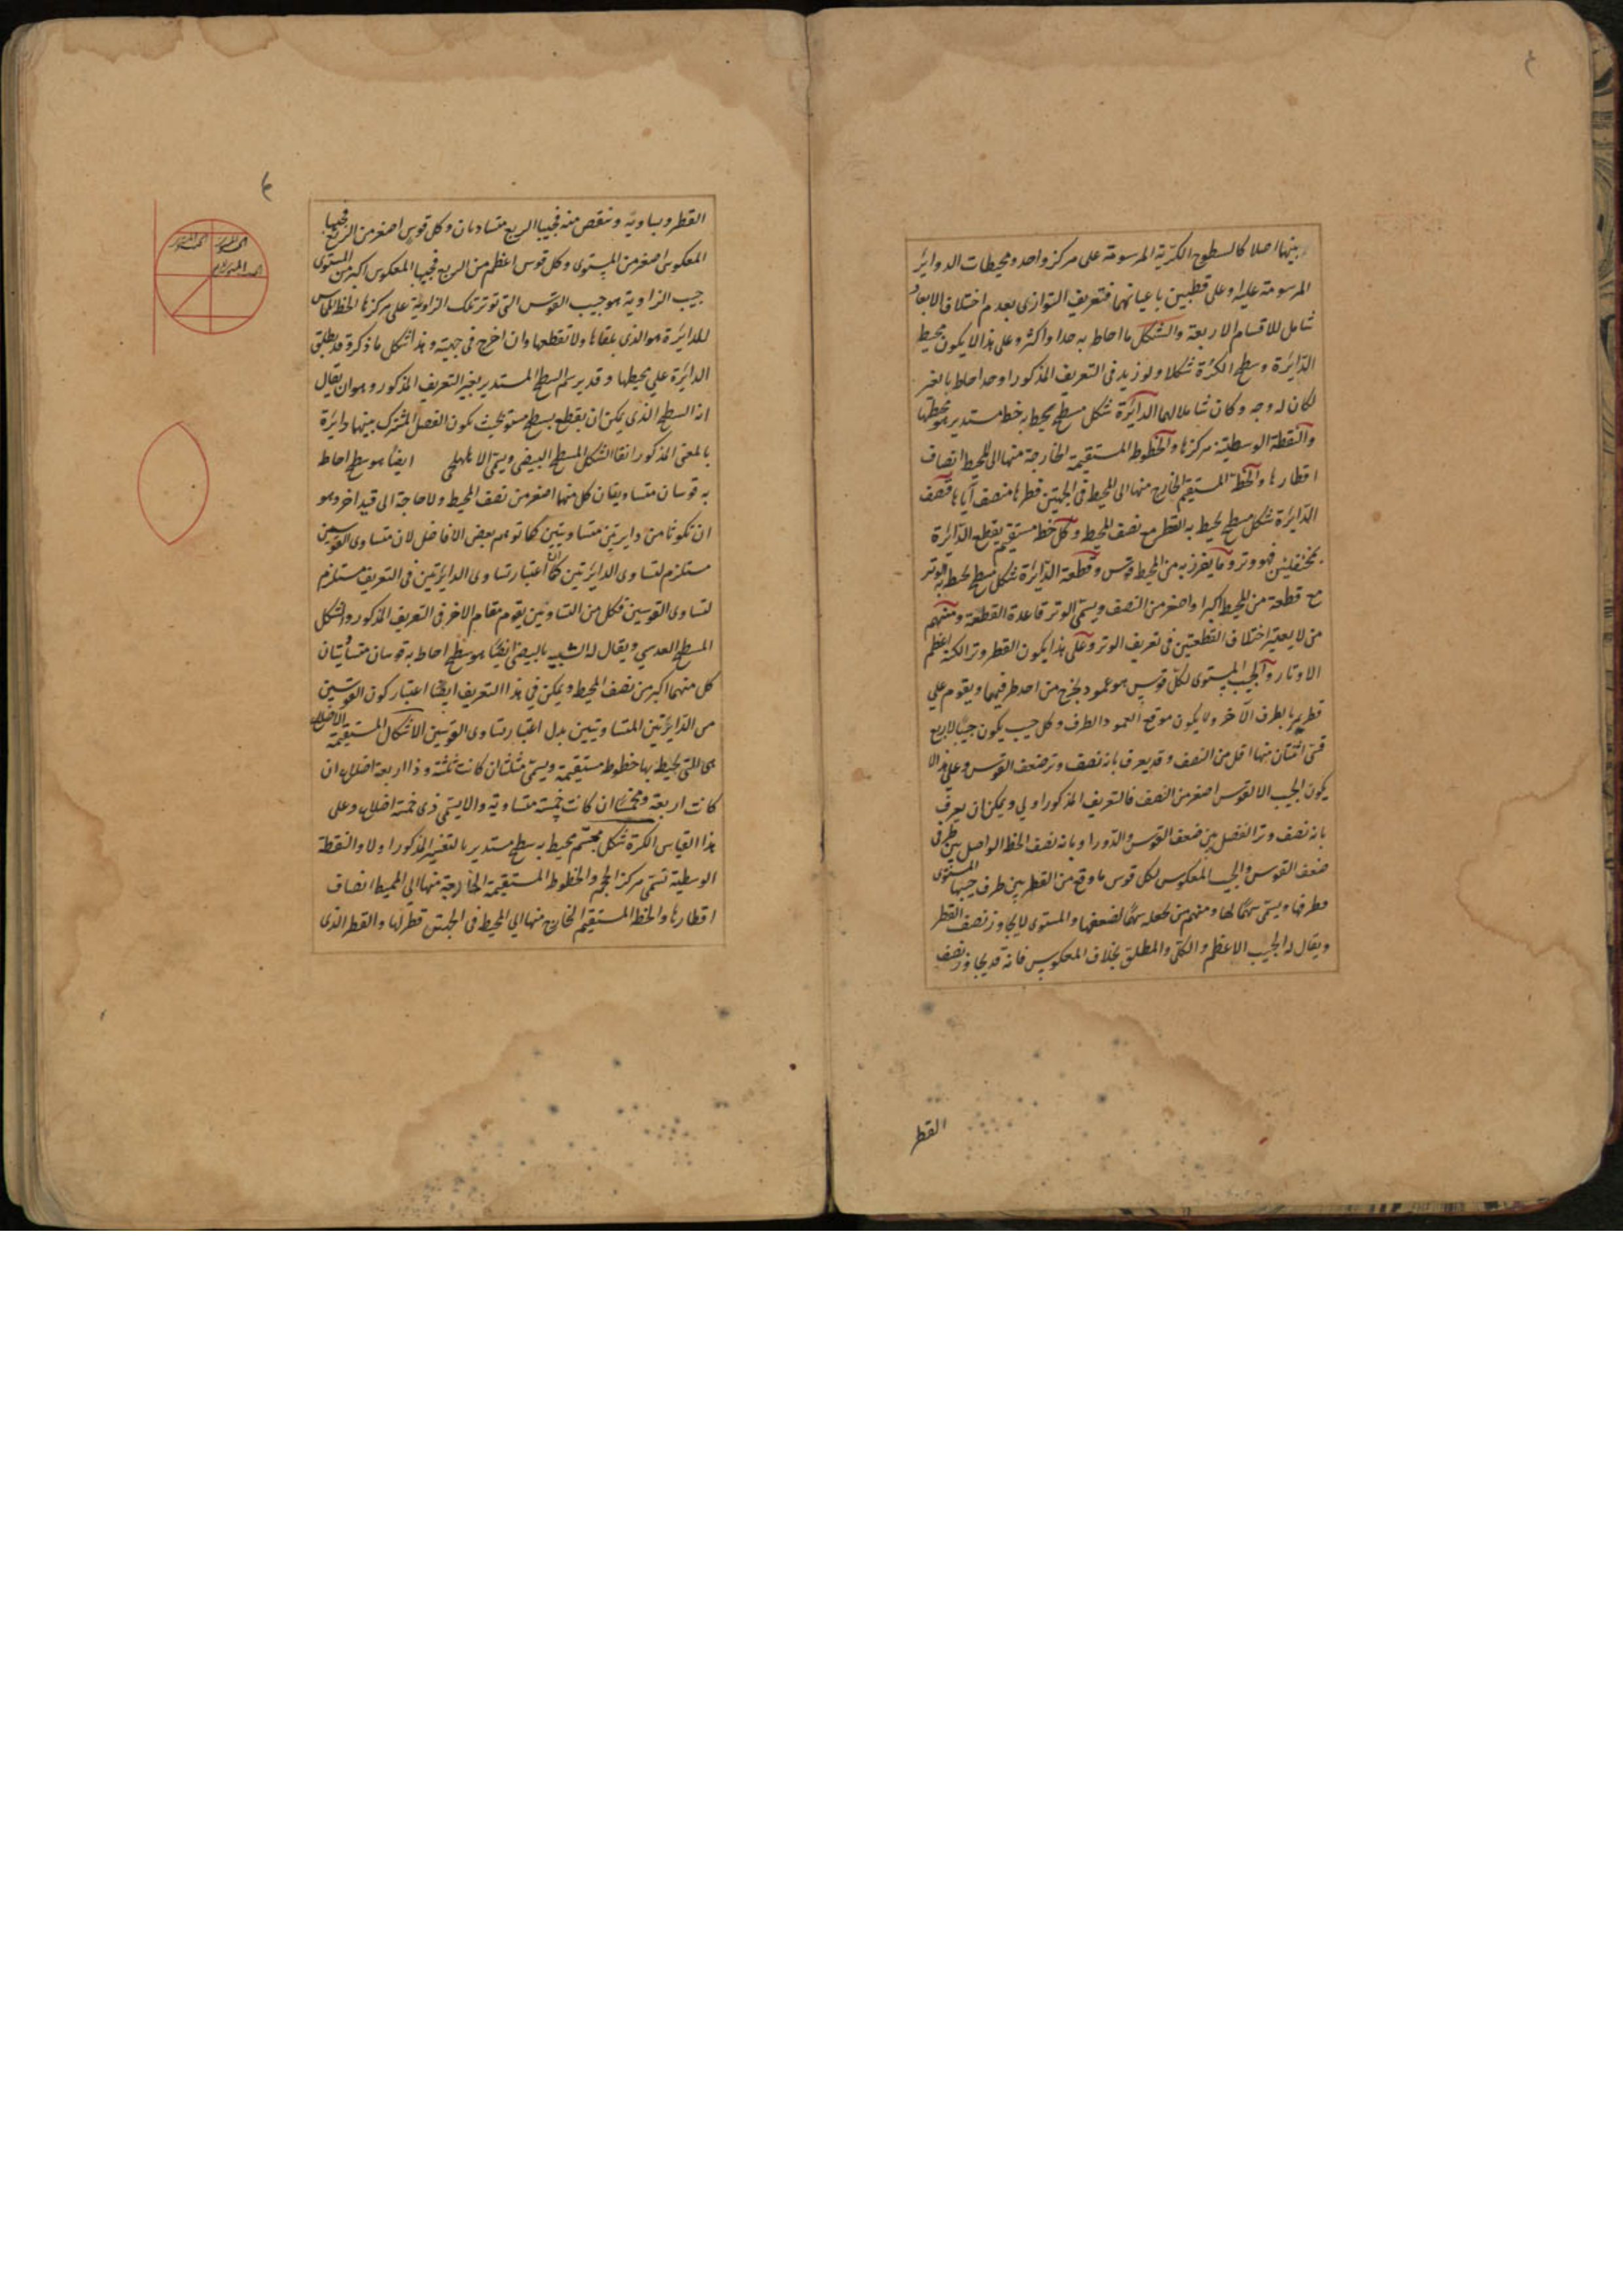 بينها اصلا كالسطوح الكرّية المرسومة على مركز واحد ومحيطات الدواير
المرسومة عليها وعلى قطبين باعيانهما فتعريف التوازى بعدم اختلاف الابعاد
شامل للاقسام الاربعة والشكل ما احاط به حد او اكثر وعلى هذا لا يكون محيط
الدايرة وسطح الكرة شكلا ولو زيد فى التعريف المذكور او حد احاط بالغير
لكان له وجه وكان شاملا لهما الدايرة شكل مسطح يحيط به خط مستدير هو محيطها
والنقطة الوسطية مركزها والخطوط المستقيمة الخارجة منها الى المحيط انصاف
اقطارها والخط المستقيم الخارج منها الى المحيط فى الجهتين قطرها منصف اياها فنصف
الدايرة شكل مسطح يحيط به القطر مع نصف المحيط وكل خط مستقيم يقطع الدايرة
بمختلفين فهو وتر وما يفرز به من المحيط قوس وقطعة الدايرة شكل مسطح يحيط به الوتر
مع قطعة من المحيط اكبر او اصغر من النصف ويسمى الوتر قاعدة القطعة ومنهم
من لا يعتبر اختلاف القطعتين فى تعريف الوتر وعلى هذا يكون القطر وترا لكنه اعظم
الاوتار والجيب المستوى لكل قوس هو عمود يخرج من احد طرفيها ويقوم على
قطر يمر بالطرف الاخر ولا يكون موقع العمود الطرف وكل جيب يكون جيبا لاربع
قسى اثنتان منها اقل من النصف وقد يعرف بانه نصف وتر ضعف القوس وعلى هذا لا
يكون الجيب الا لقوس اصغر من النصف فالتعريف المذكور اولى ويمكن ان يعرف
بانه نصف وتر الفضل بين ضعف القوس والدور او بانه نصف الخط الواصل بين طرفى
ضعف القوس والجيب المعكوس لكل قوس ما وقع من القطر بين طرف جيبها المستوى
وطرفها ويسمى سهما لها ومنهم من يجعله سهما لضعفها والمستوى لا يجاوز نصف القطر
ويقال له الجيب الاعظم والكلى والمطلق بخلاف المعكوس فانه قد يجاوز نصف
القطر
القطر ويساويه وينقص منه فجيبا الربع متساويان وكل قوس اصغر من الربع فجيبها
المعكوس اصغر من المستوى وكل قوس اعظم من الربع فجيبها المعكوس اكبر من المستوى
جيب الزاوية هو جيب القوس التى توتر تلك الزاوية على مركزها الخط المماس
للدايرة هو الذى يلقاها ولا يقطعها وان اخرج فى جهتيه وهذا شكل ما ذكره قد يطلق
الدايرة على محيطها وقد يرسم السطح المستدير بغير التعريف المذكور وهو ان يقال
انه السطح الذى يمكن ان يقطع بسطح مستو بحيث يكون الفصل المشترك بينهما دايرة
بالمعنى المذكور انفا الشكل المسطح البيضى ويسمى الاهليلجى ايضا هو سطح احاط
به قوسان متساويتان كل منهما اصغر من نصف المحيط ولا حاجة الى قيد اخر وهو
ان تكونا من دايرتين متساويتين كما توهم بعض الافاضل لان تساوى القوسين
مستلزم لتساوى الدايرتين كما ان اعتبار تساوى الدايرتين فى التعريف مستلزم
لتساوى القوسين فكل من التساويين يقوم مقام الاخر فى التعريف المذكور والشكل
المسطح العدسي ويقال له الشبيه بالبيضى ايضا هو سطح احاط به قوسان متساويتان
كل منهما اكبر من نصف المحيط ويمكن فى هذا التعريف ايضا اعتبار كون القوسين
من الدايرتين المتساويتين بدل اعتبار تساوى القوسين الاشكال المستقيمة الاضلاع
هى التى يحيط بها خطوط مستقيمة ويسمى مثلثا ان كانت ثلثة وذا اربعة اضلاع ان
كانت اربعة ومخمسا ان كانت خمسة متساوية والا يسمى ذى خمسة اضلاع وعلى
هذا القياس الكرة شكل مجسم يحيط به سطح مستدير بالتفسير المذكور اولا والنقطة
الوسطية تسمى مركز الحجم والخطوط المستقيمة الخارجة منها الى المحيط انصاف
اقطارها والخط المستقيم الخارج منها الى المحيط فى الجهتين قطر لها والقطر الذى